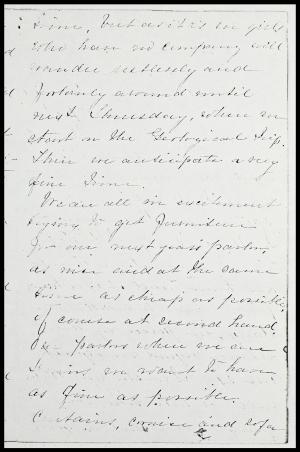 time, but as it is we girls
who have no company will
wander restlessly and
forlornly around until
next Thursday, when we
start on the Geological Trip.
Then we anticipate a very
fine time.
We are all in excitement
trying to get furniture
for our next years parlor,
as nice and at the same
time as cheap as possible,
of course at second hand.
Our parlors when we are
Seniors we want to have
as fine as possible.
Curtains, and sofa